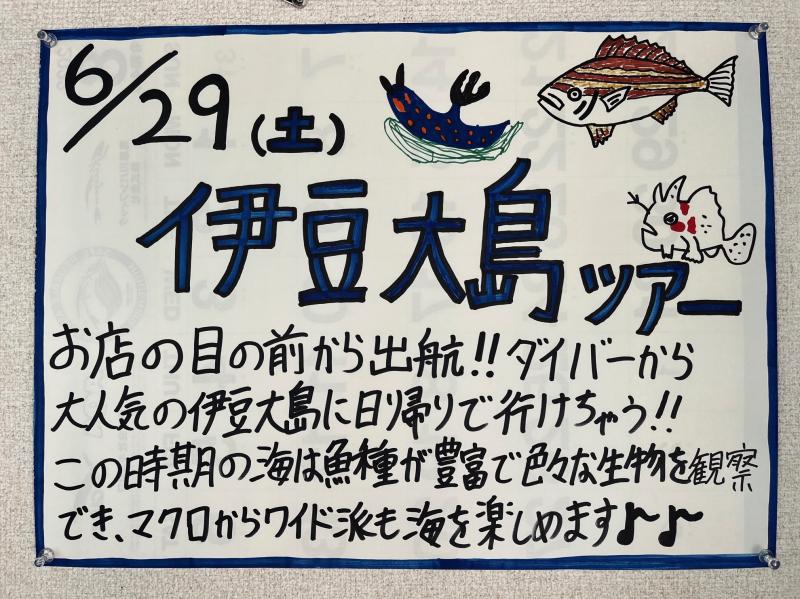 6/29(土)
伊豆大島ツアー
お店の目の前から出航!!ダイバーから
大人気の伊豆大島に日帰りで行けちゃう!!
この時期の海は魚種が豊富で色々な生物を観察
でき、マクロからワイド派も海を楽しめます♪♪